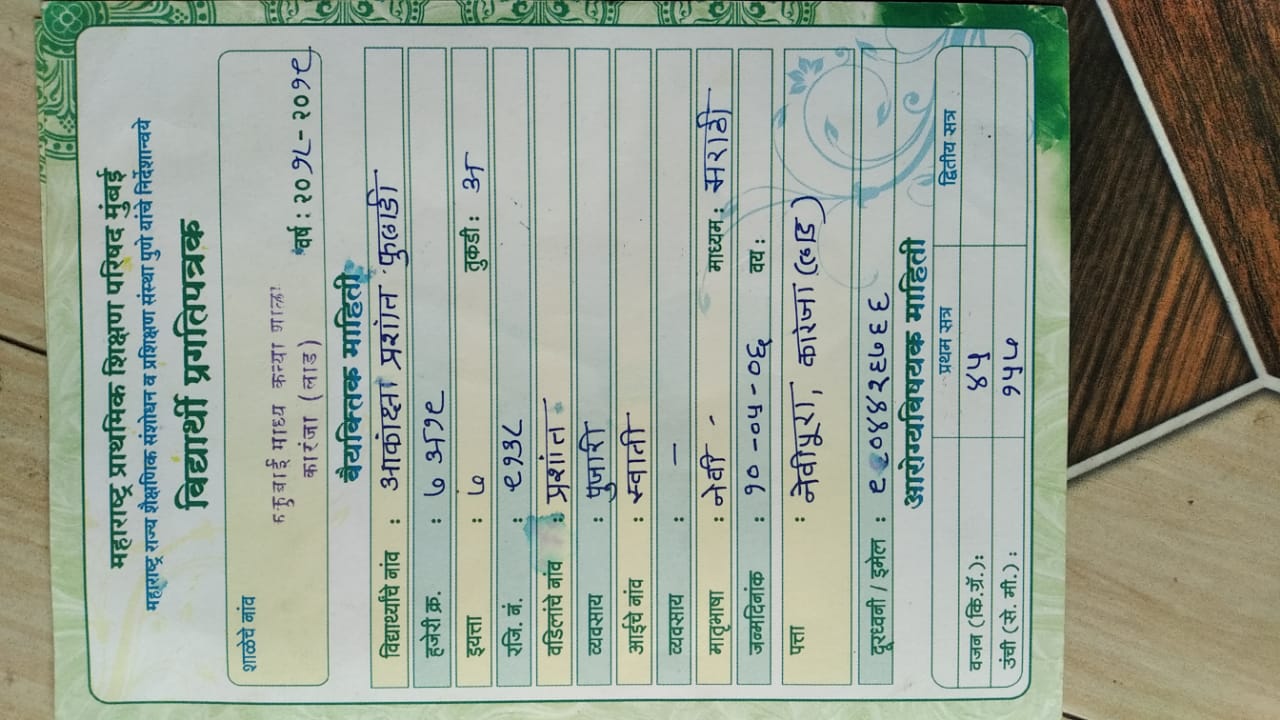 महाराष्ट्र प्राथमिक शिक्षण परिषद मुंबई
महाराष्ट्र राज्य शैक्षणिक संशोधन व प्रशिक्षण संस्था पुणे यांचे निर्देशान्वये
विद्यार्थी प्रगतिपत्रक
शाळेचे नांव
वर्ष : २०१८ - २०१९
माध्य कन्या शाळा
कारंजा (लाड)
वैयक्तिक माहिती
विद्यार्थ्याचे नांव : आकांक्षा प्रशांत फुलाडी
हजेरी क्र. : ७ अ१९
इयत्ता : ७ तुकडी : अ
रजि. नं. : ९१३८
वडिलांचे नांव : प्रशांत
व्यवसाय : पुजारी
आईचे नांव : स्वाती
व्यवसाय : —
मातृभाषा : नेवी - माध्यम : मराठी
जन्मदिनांक : १० -०५ -०६ वय :
पत्ता : नेवीपूरा, कारंजा (लाड)
दूरध्वनी / इमेल : ९८०४४२६७६६
आरोग्यविषयक माहिती
प्रथम सत्र द्वितीय सत्र
वजन (कि.ग्रॅ.): ४५
उंची (से. मी.) : १५७